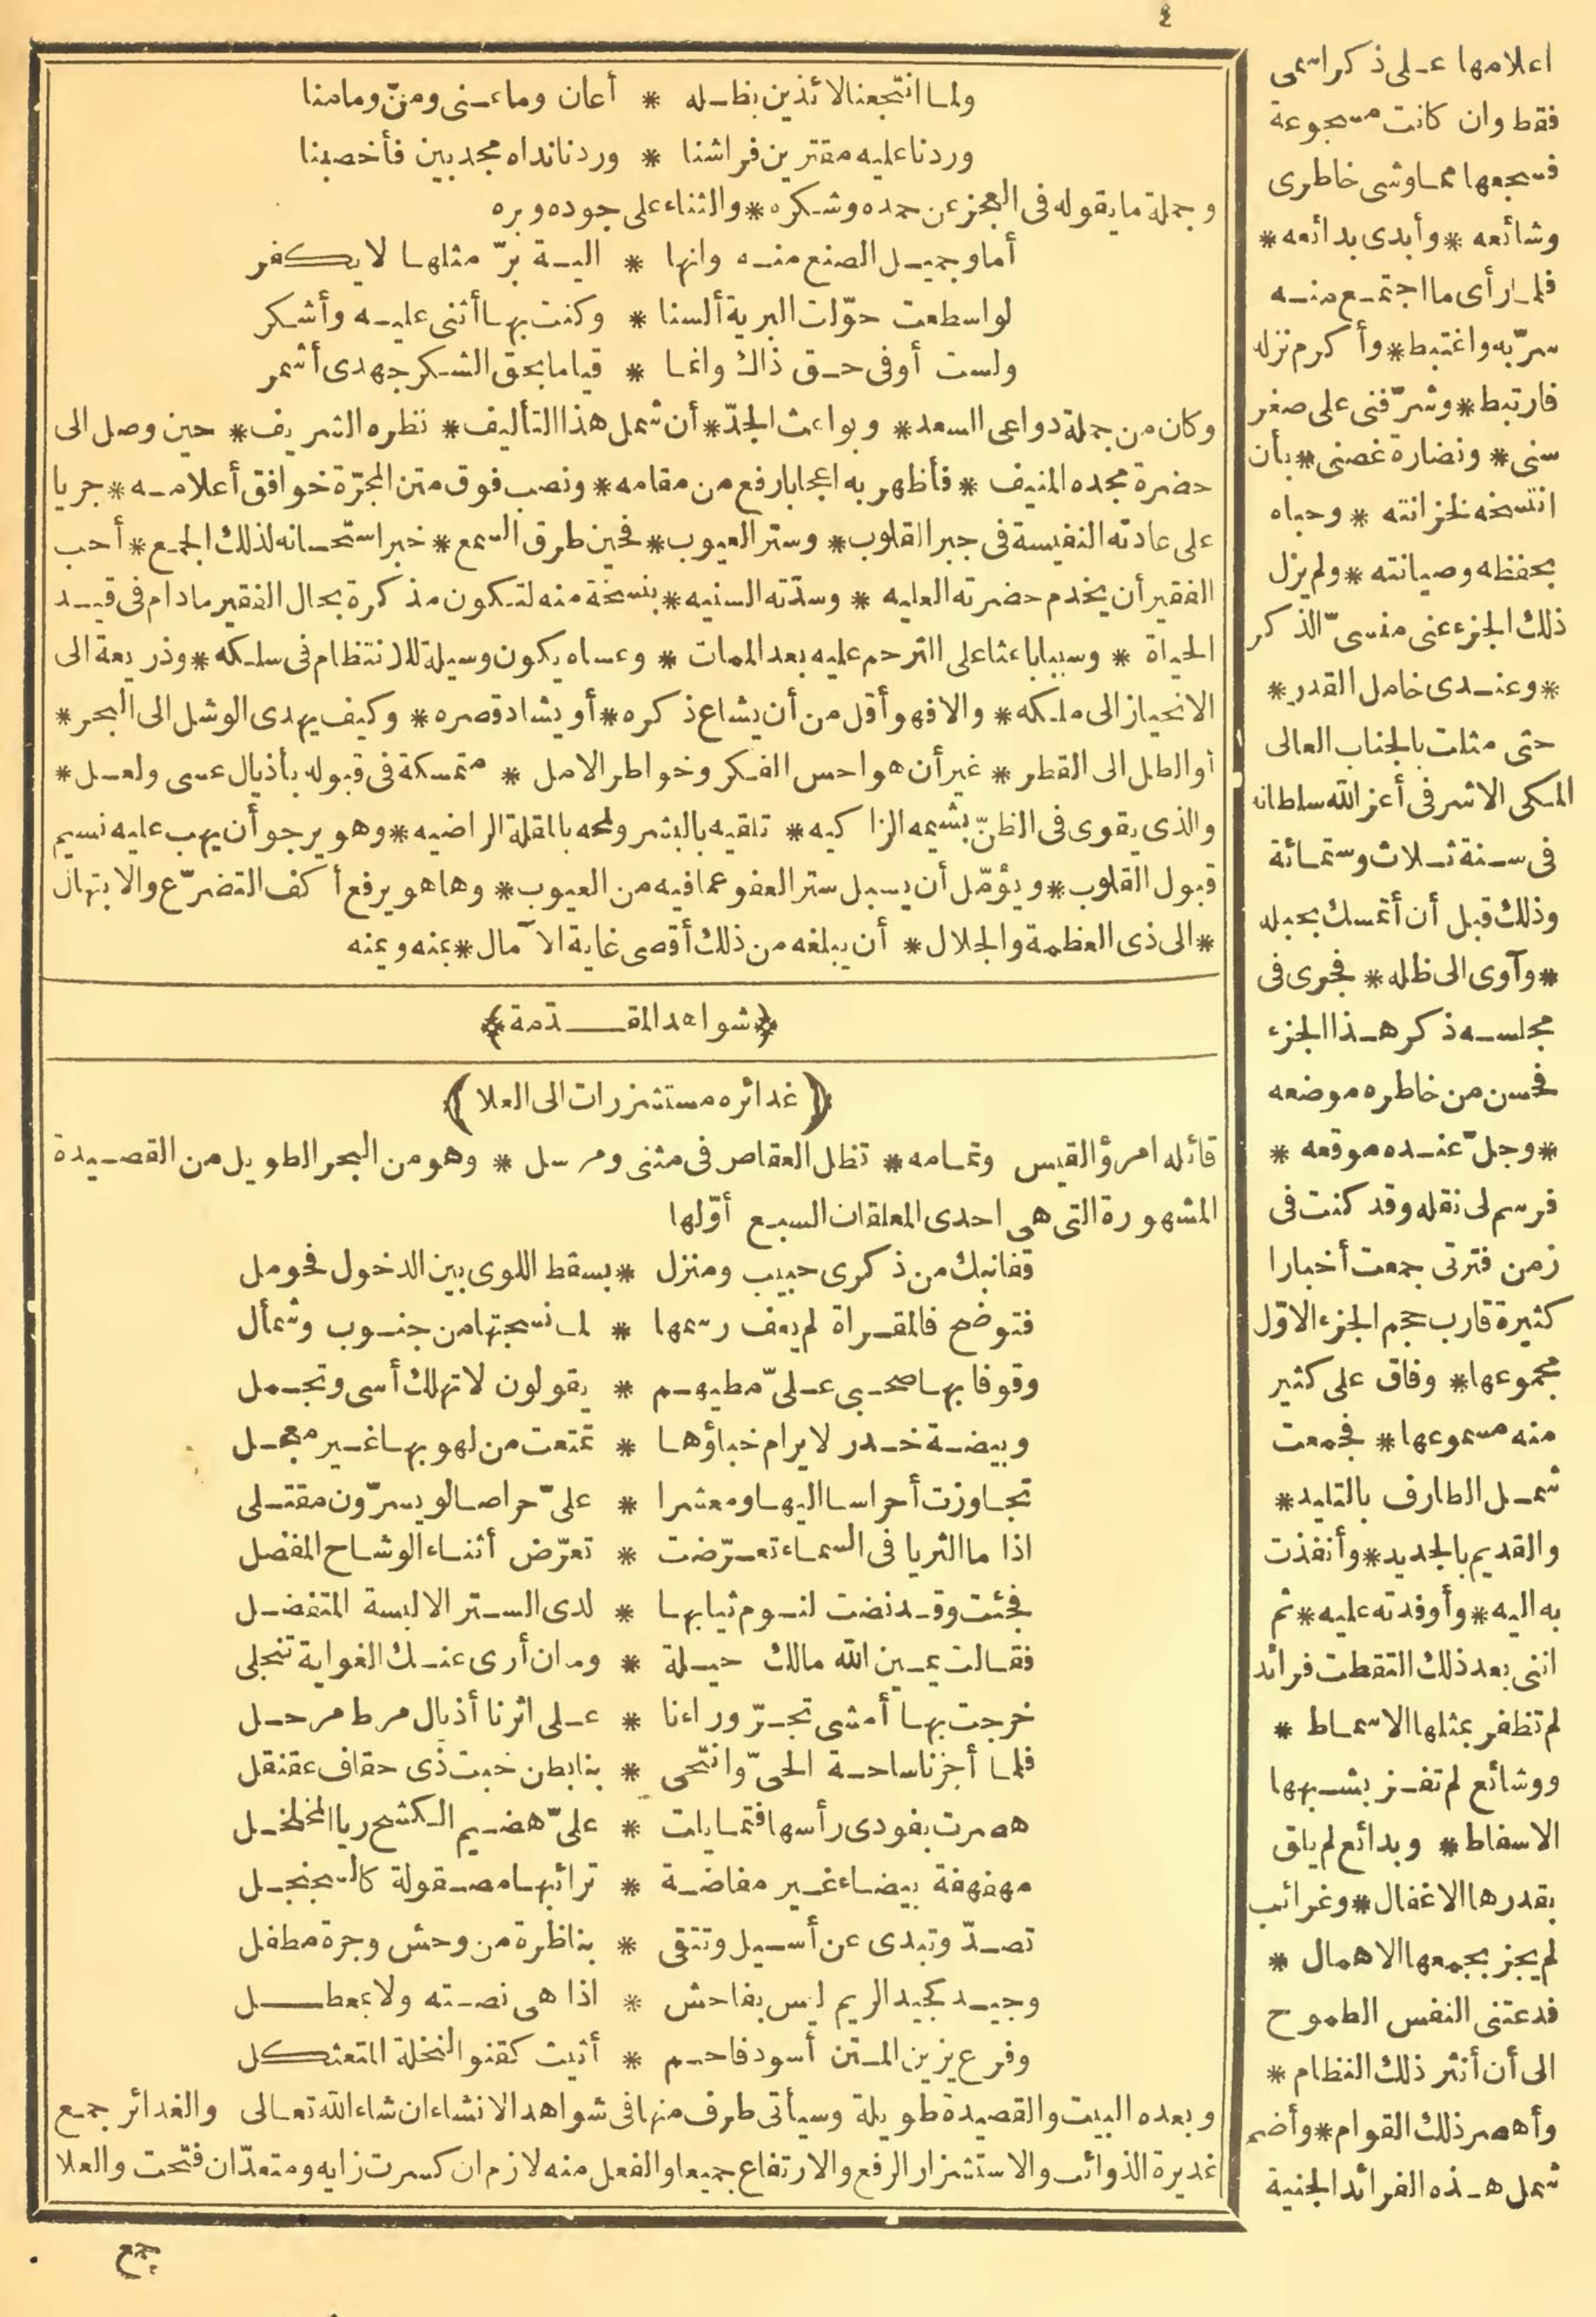 ٤
ولما انتجعنا لائذين بظله * أعان وما عنى ومنّ وما منا
وردنا عليه مقترين فراشنا * وردنا نداه مجدبين فأخصبنا
وجملة ما يقوله فى العجز عن حمده وشكره * والثناء على جوده وبره
أما وجميل الصنع منه وانها * الية برّ مثلها لا يكفر
لو اسطعت حوّلت البرية ألسنا * وكنت بها أثنى عليه وأشكر
ولست أوفى حق ذاك وانما * قياما بحق الشكر جهدى أشمر
وكان من جملة دواعى السعد * وبواعث الجدّ * أن شمل هذا التأليف * نظره الشريف * حين وصل الى
حضرة مجده المنيف * فأظهر به اعجابا رفع من مقامه * ونصب فوق متن المجرّة خوافق أعلامه * جريا
على عادته النفيسة فى جبر القلوب * وستر العيوب * فحين طرق السمع * خبر استحسانه لذلك الجمع * أحب
الفقير أن يخدم حضرته العليه * وسدّته السنيه * بنسخة منه لتكون مذكرة بحال الفقير مادام فى قيد
الحياة * وسببا باعثا على الترحم عليه بعد الممات * وعساه يكون وسيلة للانتظام فى سلكه * وذريعة الى
الانحياز الى ملكه * والا فهو أقل من أن يشاع ذكره * أو يشاد قصره * وكيف يهدى الوشل الى البحر *
أو الطل الى القطر * غير أن هواجس الفكر وخواطر الامل * متمسكة فى قبوله بأذيال عسى ولعل *
والذى يقوى فى الظنّ بشيمه الزاكيه * تلقيه بالبشر ولمحه بالمقلة الراضيه * وهو يرجو أن يهب عليه نسيم
قبول القلوب * ويؤمّل أن يسبل ستر العفو عما فيه من العيوب * وها هو يرفع أكف التضرّع والابتهال
* الى ذى العظمة والجلال * أن يبلغه من ذلك أقصى غاية الآمال * بمنه ويمنه
﴿شواهد المقدّمة﴾
(غدائره مستشزرات الى العلا)
قائله امرؤ القيس وتمامه * تظل العقاص فى مثنى ومرسل * وهو من البحر الطويل من القصيدة
المشهورة التى هى احدى المعلقات السبع أوّلها
قفا نبك من ذكرى حبيب ومنزل * بسقط اللوى بين الدخول فحومل
فتوضح فالمقراة لم يعف رسمها * لما نسجتها من جنوب وشمأل
وقوفا بها صحبى علىّ مطيهم * يقولون لا تهلك أسى وتجمل
وبيضة خدر لا يرام خباؤها * تمتعت من لهو بها غير معجل
تجاوزت أحراسا اليها ومعشرا * علىّ حراصا لو يسرّون مقتلى
اذا ما الثريا فى السماء تعرّضت * تعرّض أثناء الوشاح المفصل
فجئت وقد نضت لنوم ثيابها * لدى الستر الا لبسة المتفضل
فقالت يمين الله مالك حيلة * وما ان أرى عنك الغواية تنجلى
خرجت بها أمشى تجرّ وراءنا * على اثرنا أذيال مرط مرحل
فلما أجزنا ساحة الحىّ وانتحى * بنا بطن خبت ذى حقاف عقنقل
هصرت بفودى رأسها فتمايلت * علىّ هضيم الكشح ريا المخلخل
مهفهفة بيضاء غير مفاضة * ترائبها مصقولة كالسجنجل
تصدّ وتبدى عن أسيل وتتقى * بناظرة من وحش وجرة مطفل
وجيد كجيد الريم ليس بفاحش * اذا هى نصته ولا بمعطل
وفرع يزين المتن أسود فاحم * أثيت كقنو النخلة المتعثكل
وبعده البيت والقصيدة طويلة وسيأتى طرف منها فى شواهد الانشاء ان شاء الله تعالى والغدائر جمع
غديرة الذوائب والاستشزار الرفع والارتفاع جميعا والفعل منه لازم ان كسرت زايه ومتعدّ ان فتحت والعلا
جمع
اعلامها على ذكر اسمى
فقط وان كانت مسجوعة
فسجعها مما وشى خاطرى
وشائعه * وأبدى بدائعه *
فلما رأى ما اجتمع منه
سرّ به واغتبط * وأكرم نزله
فارتبط * وشرّفنى على صغر
سنى * ونضارة غصنى * بأن
انتسخه لخزانته * وحباه
بحفظه وصيانته * ولم يزل
ذلك الجزء عنى منسىّ الذكر
* وعندى خامل القدر *
حتى مثلت بالجناب العالى
الملكى الاشرفى أعز الله سلطانه
فى سنة ثلاث وستمائة
وذلك قبل أن أتمسك بحبله
* وآوى الى ظله * فجرى فى
مجلسه ذكر هذا الجزء
فحسن من خاطره موضعه
* وجلّ عنده موقعه *
فرسم لى نقله وقد كنت فى
زمن فترتى جمعت أخبارا
كثيرة قارب حجم الجزء الاوّل
مجموعها * وفاق على كثير
منه مسموعها * فجمعت
شمل الطارف بالتليد *
والقديم بالجديد * وأنفذت
به اليه * وأوفدته عليه * ثم
اننى بعد ذلك التقطت فرائد
لم تظفر بمثلها الاسماط *
ووشائع لم تفز بشبهها
الاسفاط * وبدائع لم يلق
بقدرها الاغفال * وغرائب
لم يجز بجمعها الاهمال *
فدعتنى النفس الطموح
الى أن أنثر ذلك النظام *
وأهصر ذلك القوام * وأضم
شمل هذه الفرائد الجنية